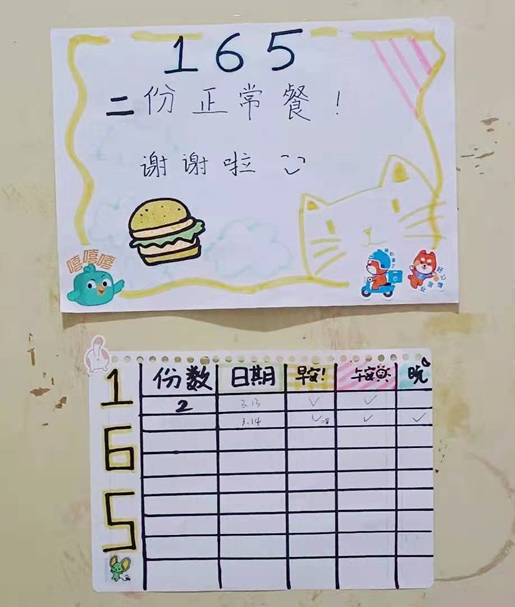 165
二份正常餐！
谢谢啦
嘻嘻嘻
165
份数 日期 早安! 午安 晚
2 3.13 ✓ ✓
3.14 ✓ ✓ ✓